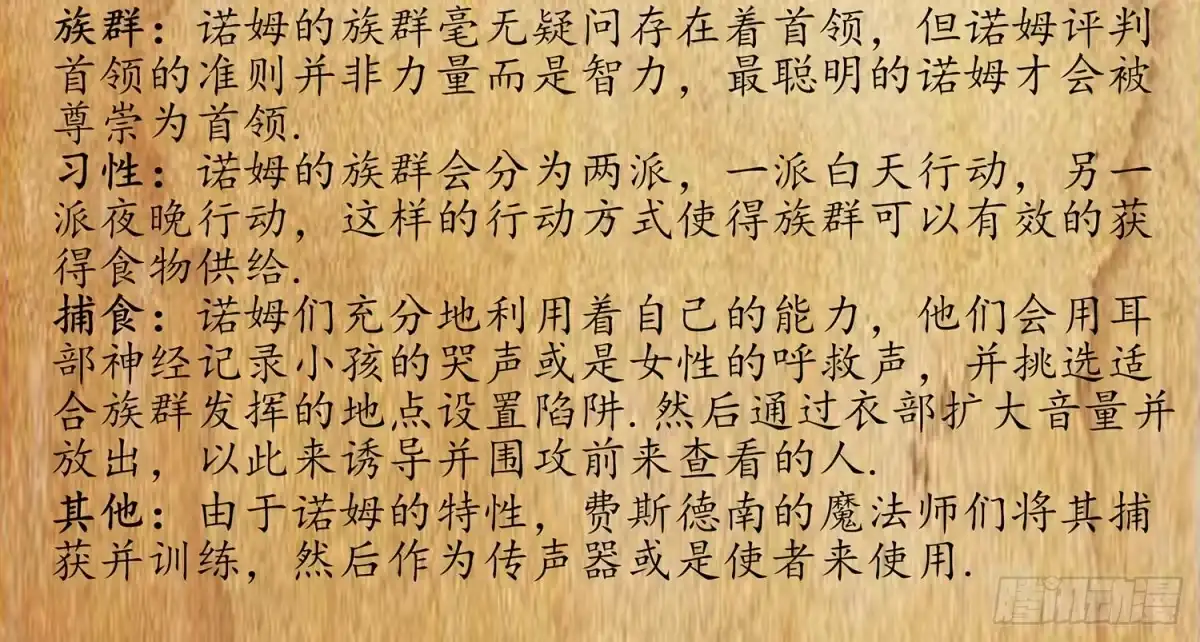 族群：诺姆的族群毫无疑问存在着首领，但诺姆评判
首领的准则并非力量而是智力，最聪明的诺姆才会被
尊崇为首领.
习性：诺姆的族群会分为两派，一派白天行动，另一
派夜晚行动，这样的行动方式使得族群可以有效的获
得食物供给.
捕食：诺姆们充分地利用着自己的能力，他们会用耳
部神经记录小孩的哭声或是女性的呼救声，并挑选适
合族群发挥的地点设置陷阱.然后通过衣部扩大音量并
放出，以此来诱导并围攻前来查看的人.
其他：由于诺姆的特性，费斯德南的魔法师们将其捕
获并训练，然后作为传声器或是使者来使用.
腾讯动漫